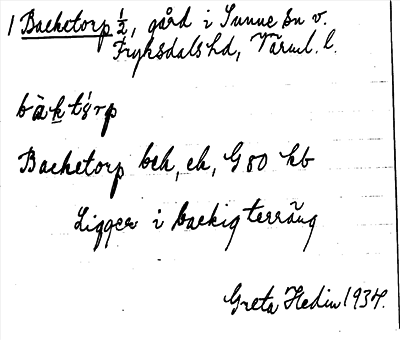 1 Backetorp ½, gård i Sunne sn v.
Fryksdals hd, Värml. l.
bàkt8́rp
Backetorp bck, ck, G 80 kb
Ligger i backig terräng
Greta Hedin 1934.